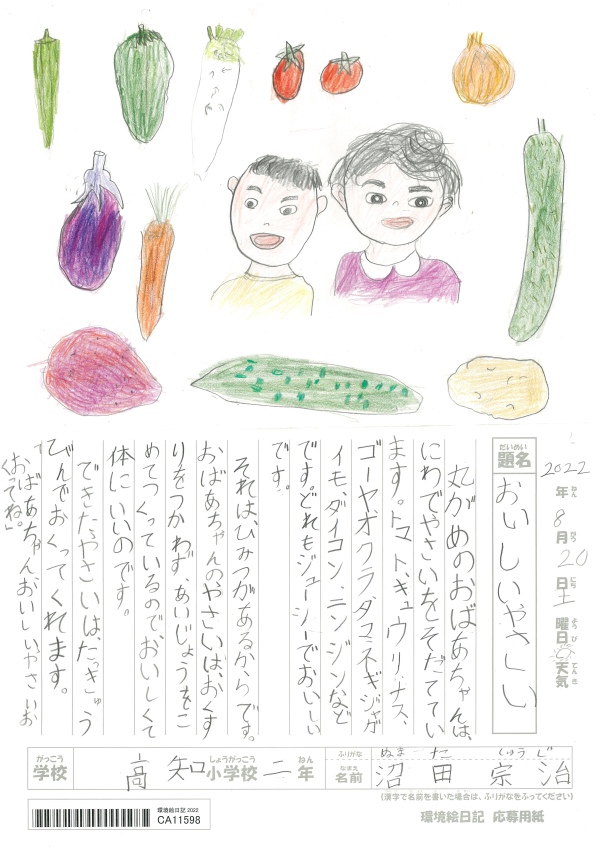 2022年8月20日土曜日天気
ねん がつ にち ようび てんき
だいめい
題名
おいしいやさい
丸がめのおばあちゃんは、
にわでやさいをそだててい
ます。トマト、キュウリ、ナス、
ゴーヤオクラ、タマネギジャガ
イモ、ダイコン、ニンジンなど
です。どれもジューシーでおいしい
です。
それは、ひみつがあるからです。
おばあちゃんのやさいは、おくす
りをつかわず、あいじょうをこ
めてつくっているので、おいしくて
体にいいのです。
できたやさいは、たっきゅう
びんでおくってくれます。
「おばあちゃんおいしいやさいお
くってね。」
がっこう しょうがっこう ねん
学校 高知小学校二年
ふりがな ぬまた しゅうじ
なまえ
名前 沼田宗治
(漢字で名前を書いた場合は、ふりがなをふってください)
環境絵日記 応募用紙
環境絵日記 2022
CA11598